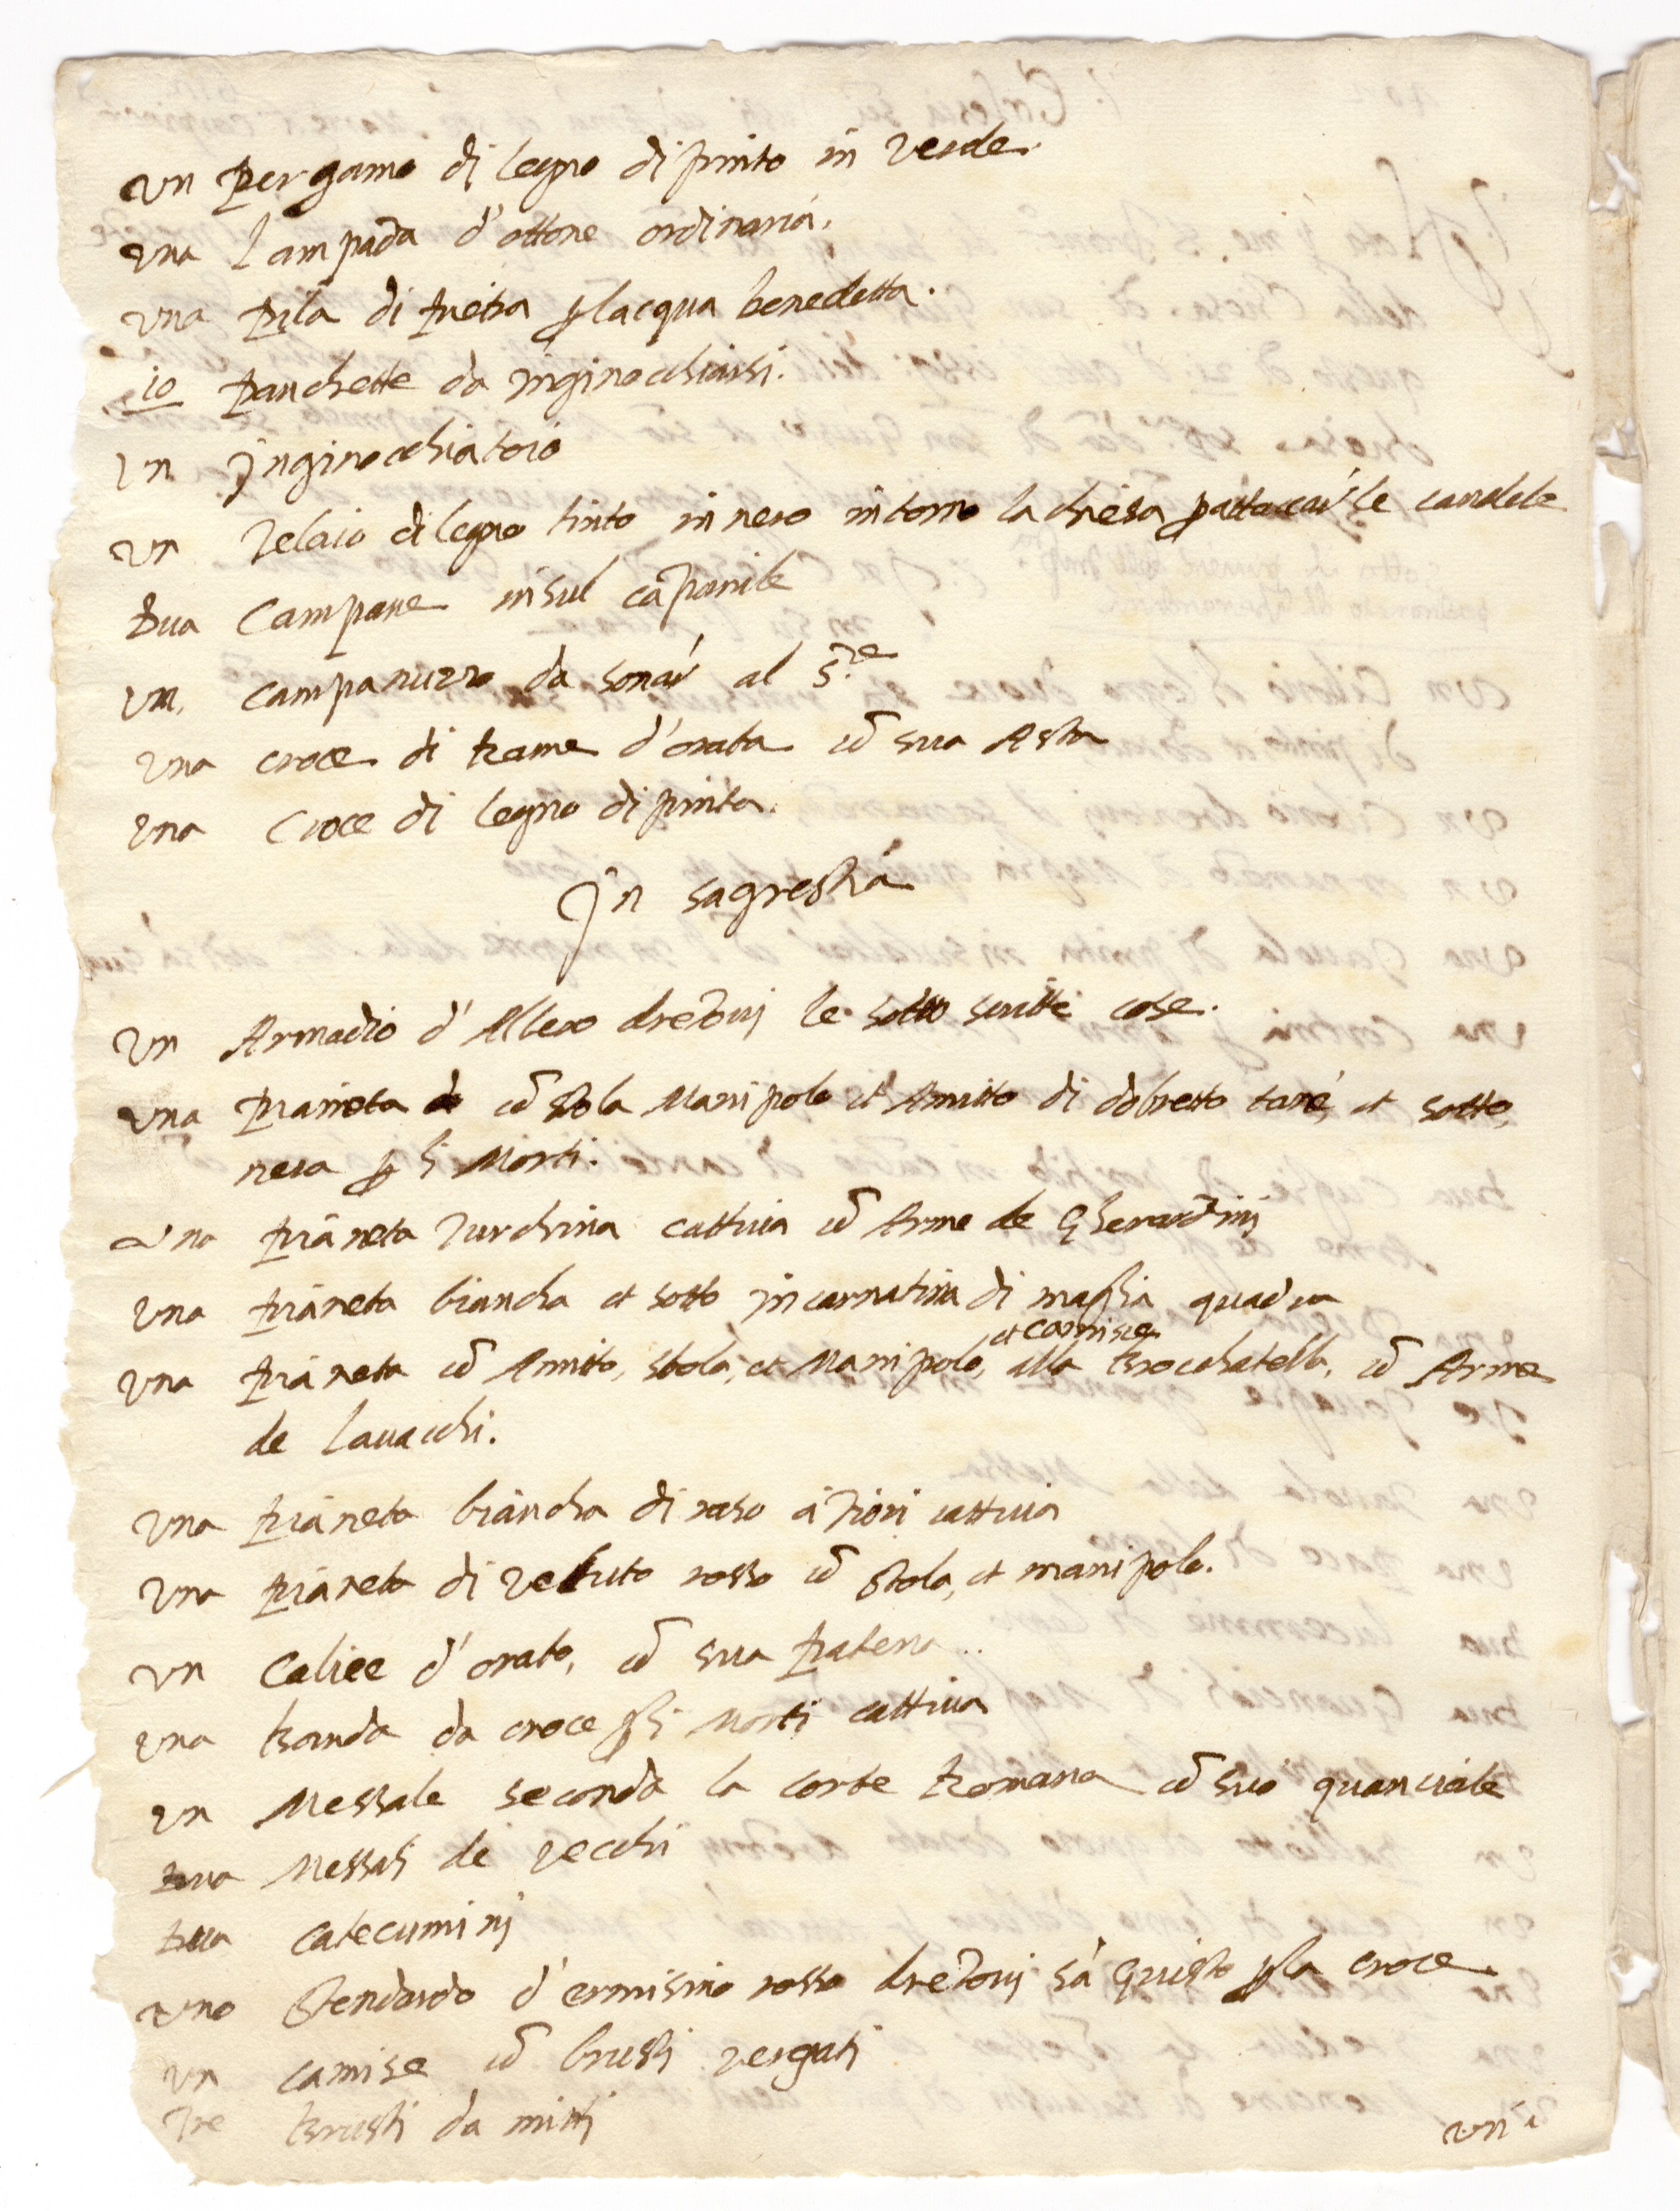 Un pergamo di legno dipinto in verde.
Una lampada d'ottone ordinaria.
Una pila di pietra p lacqua benedetta.
10 panchette da inginocchiarsi.
Un Inginocchiatoio
Un Telaio di legno tinto in nero intorno la chiesa p attaccar le candele
Dua Campane insul cāpanile
Un campanuzzo da sonar al S.re
Una croce di rame d'orata cō sua Asta
Una Croce di legno dipinta.
In sagrestia
Un Armadio d'Albero dretovi le sotto scritte cose.
Una pianeta cō stola Manipolo et Amitto di dobretto tanè, et sotto,
nera p li Morti.
Una pianeta Turchina cattiva cō Arme de Gherardinj
Una pianeta biancha et sotto incarnatina di maglia quadra
et camise
Una pianeta cō Amitto, stola, et Manipolo, alla brochatella, cō Arme
de Lavacchi.
Una pianeta biancha di raso à fiori cattiva
Una pianeta di velluto rosso cō stola, et manipolo.
Un Calice d'orato, cō sua patena
Una banda da croce p li Morti cattiva
Un Messale seconda la corte romana cō suo guanciale
Dua Messali de vecchi
Dua Catecuminj
Uno stendardo d'ermisino rosso dretovj sà Giusto p la croce
Un camise cō brusti vergati
Tre brusti da
un i